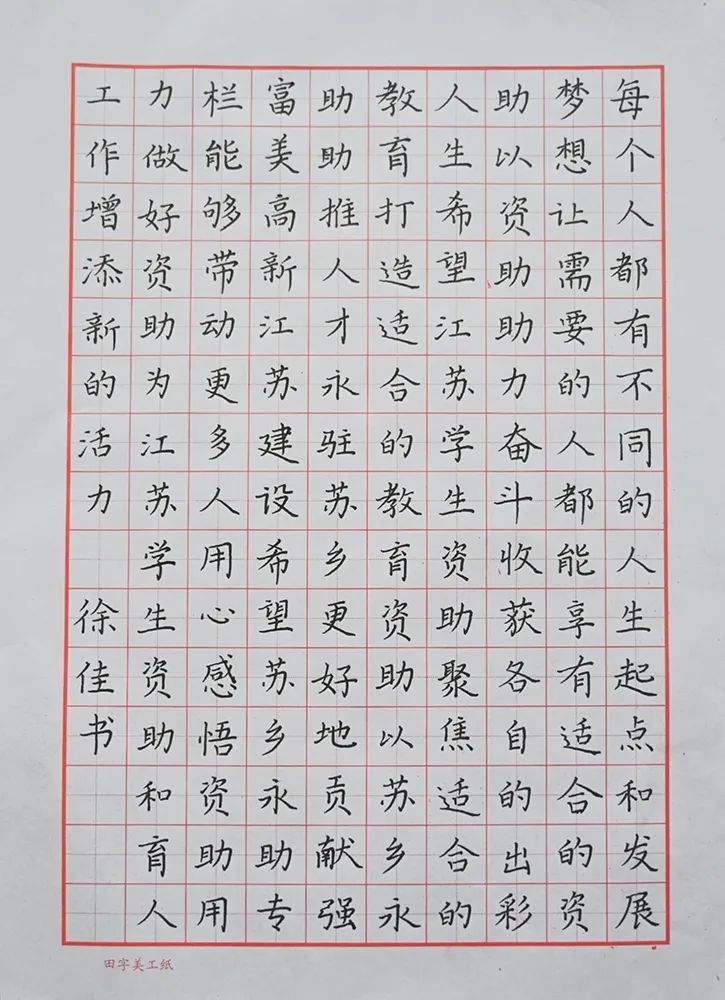 每个人都有不同的人生起点和发展
梦想让需要的人都能享有适合的资
助以资助助力奋斗收获各自的出彩
人生希望江苏学生资助聚焦适合的
教育打造适合的教育资助以苏乡永
助助推人才永驻苏乡更好地贡献强
富美高新江苏建设希望苏乡永助专
栏能够带动更多人用心感悟资助用
力做好资助为江苏学生资助和育人
工作增添新的活力 徐佳书
田字美工纸